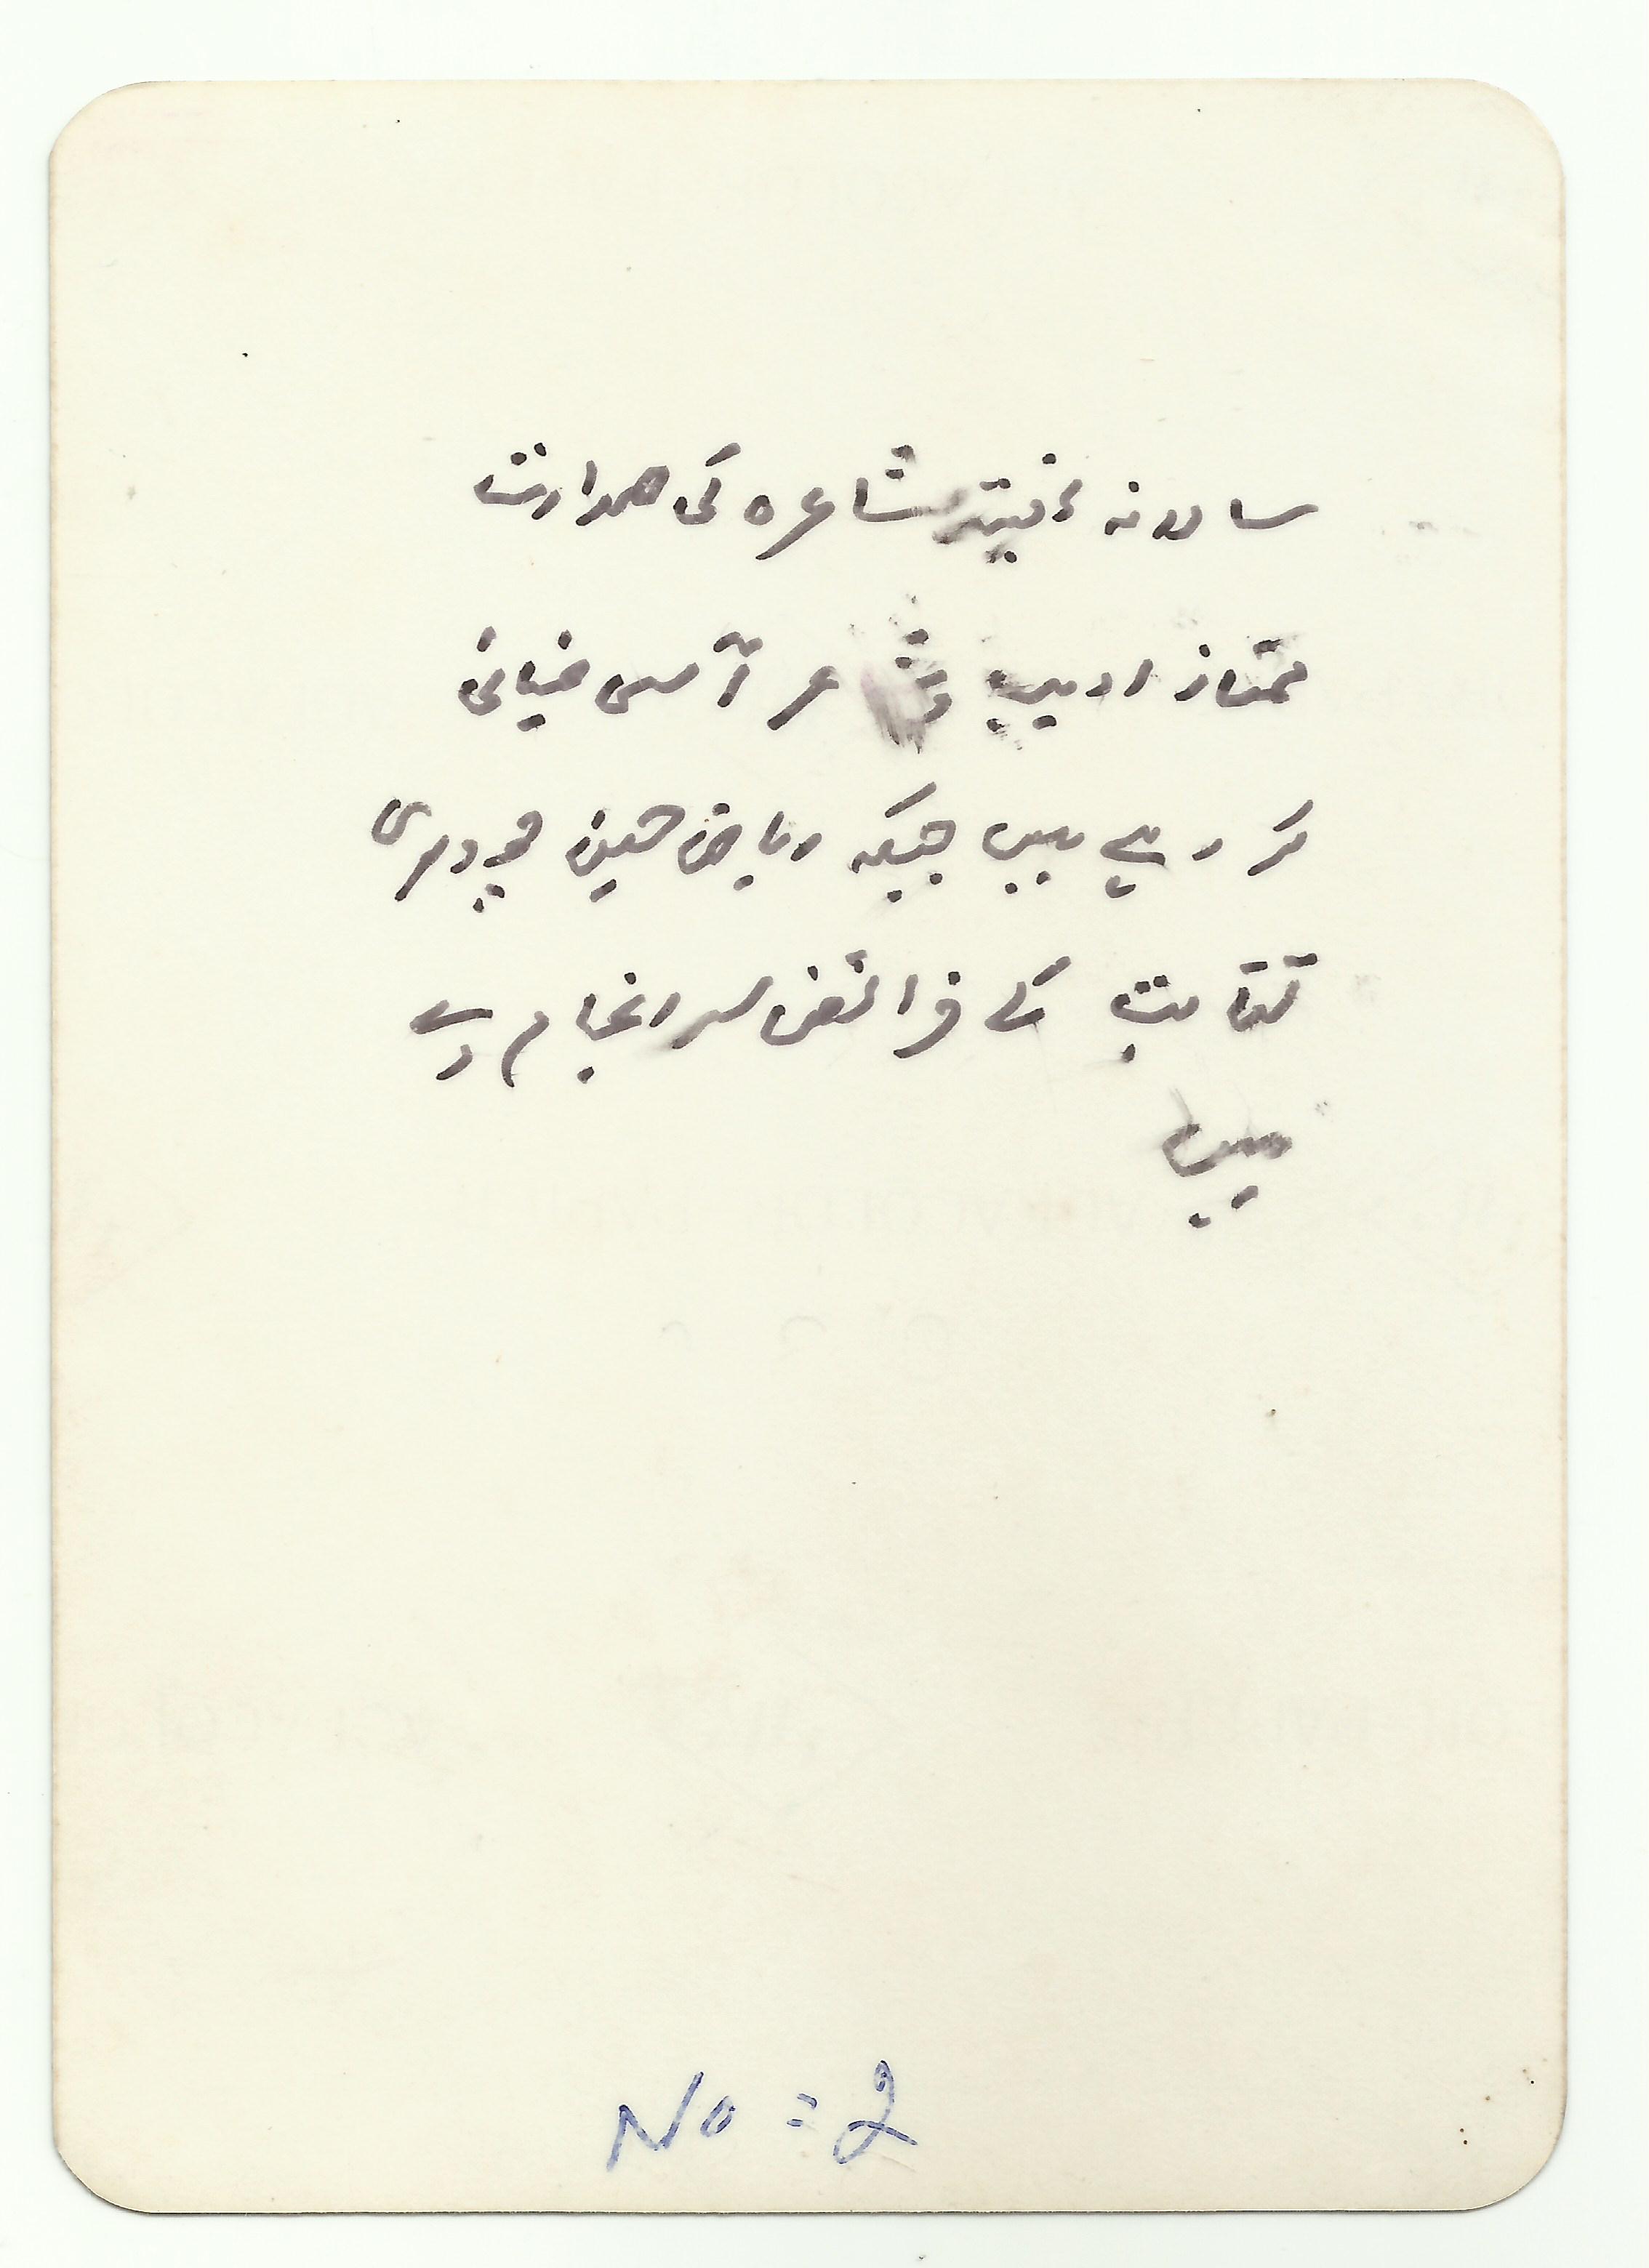 سالانہ نعتیہ مشاعرہ کی صدارت
ممتاز ادیب و شاعر آسی ضیائی
کر رہے ہیں جبکہ ریاض حسین چودھری
نقابت کے فرائض سرانجام دے
ہیں
No = 2